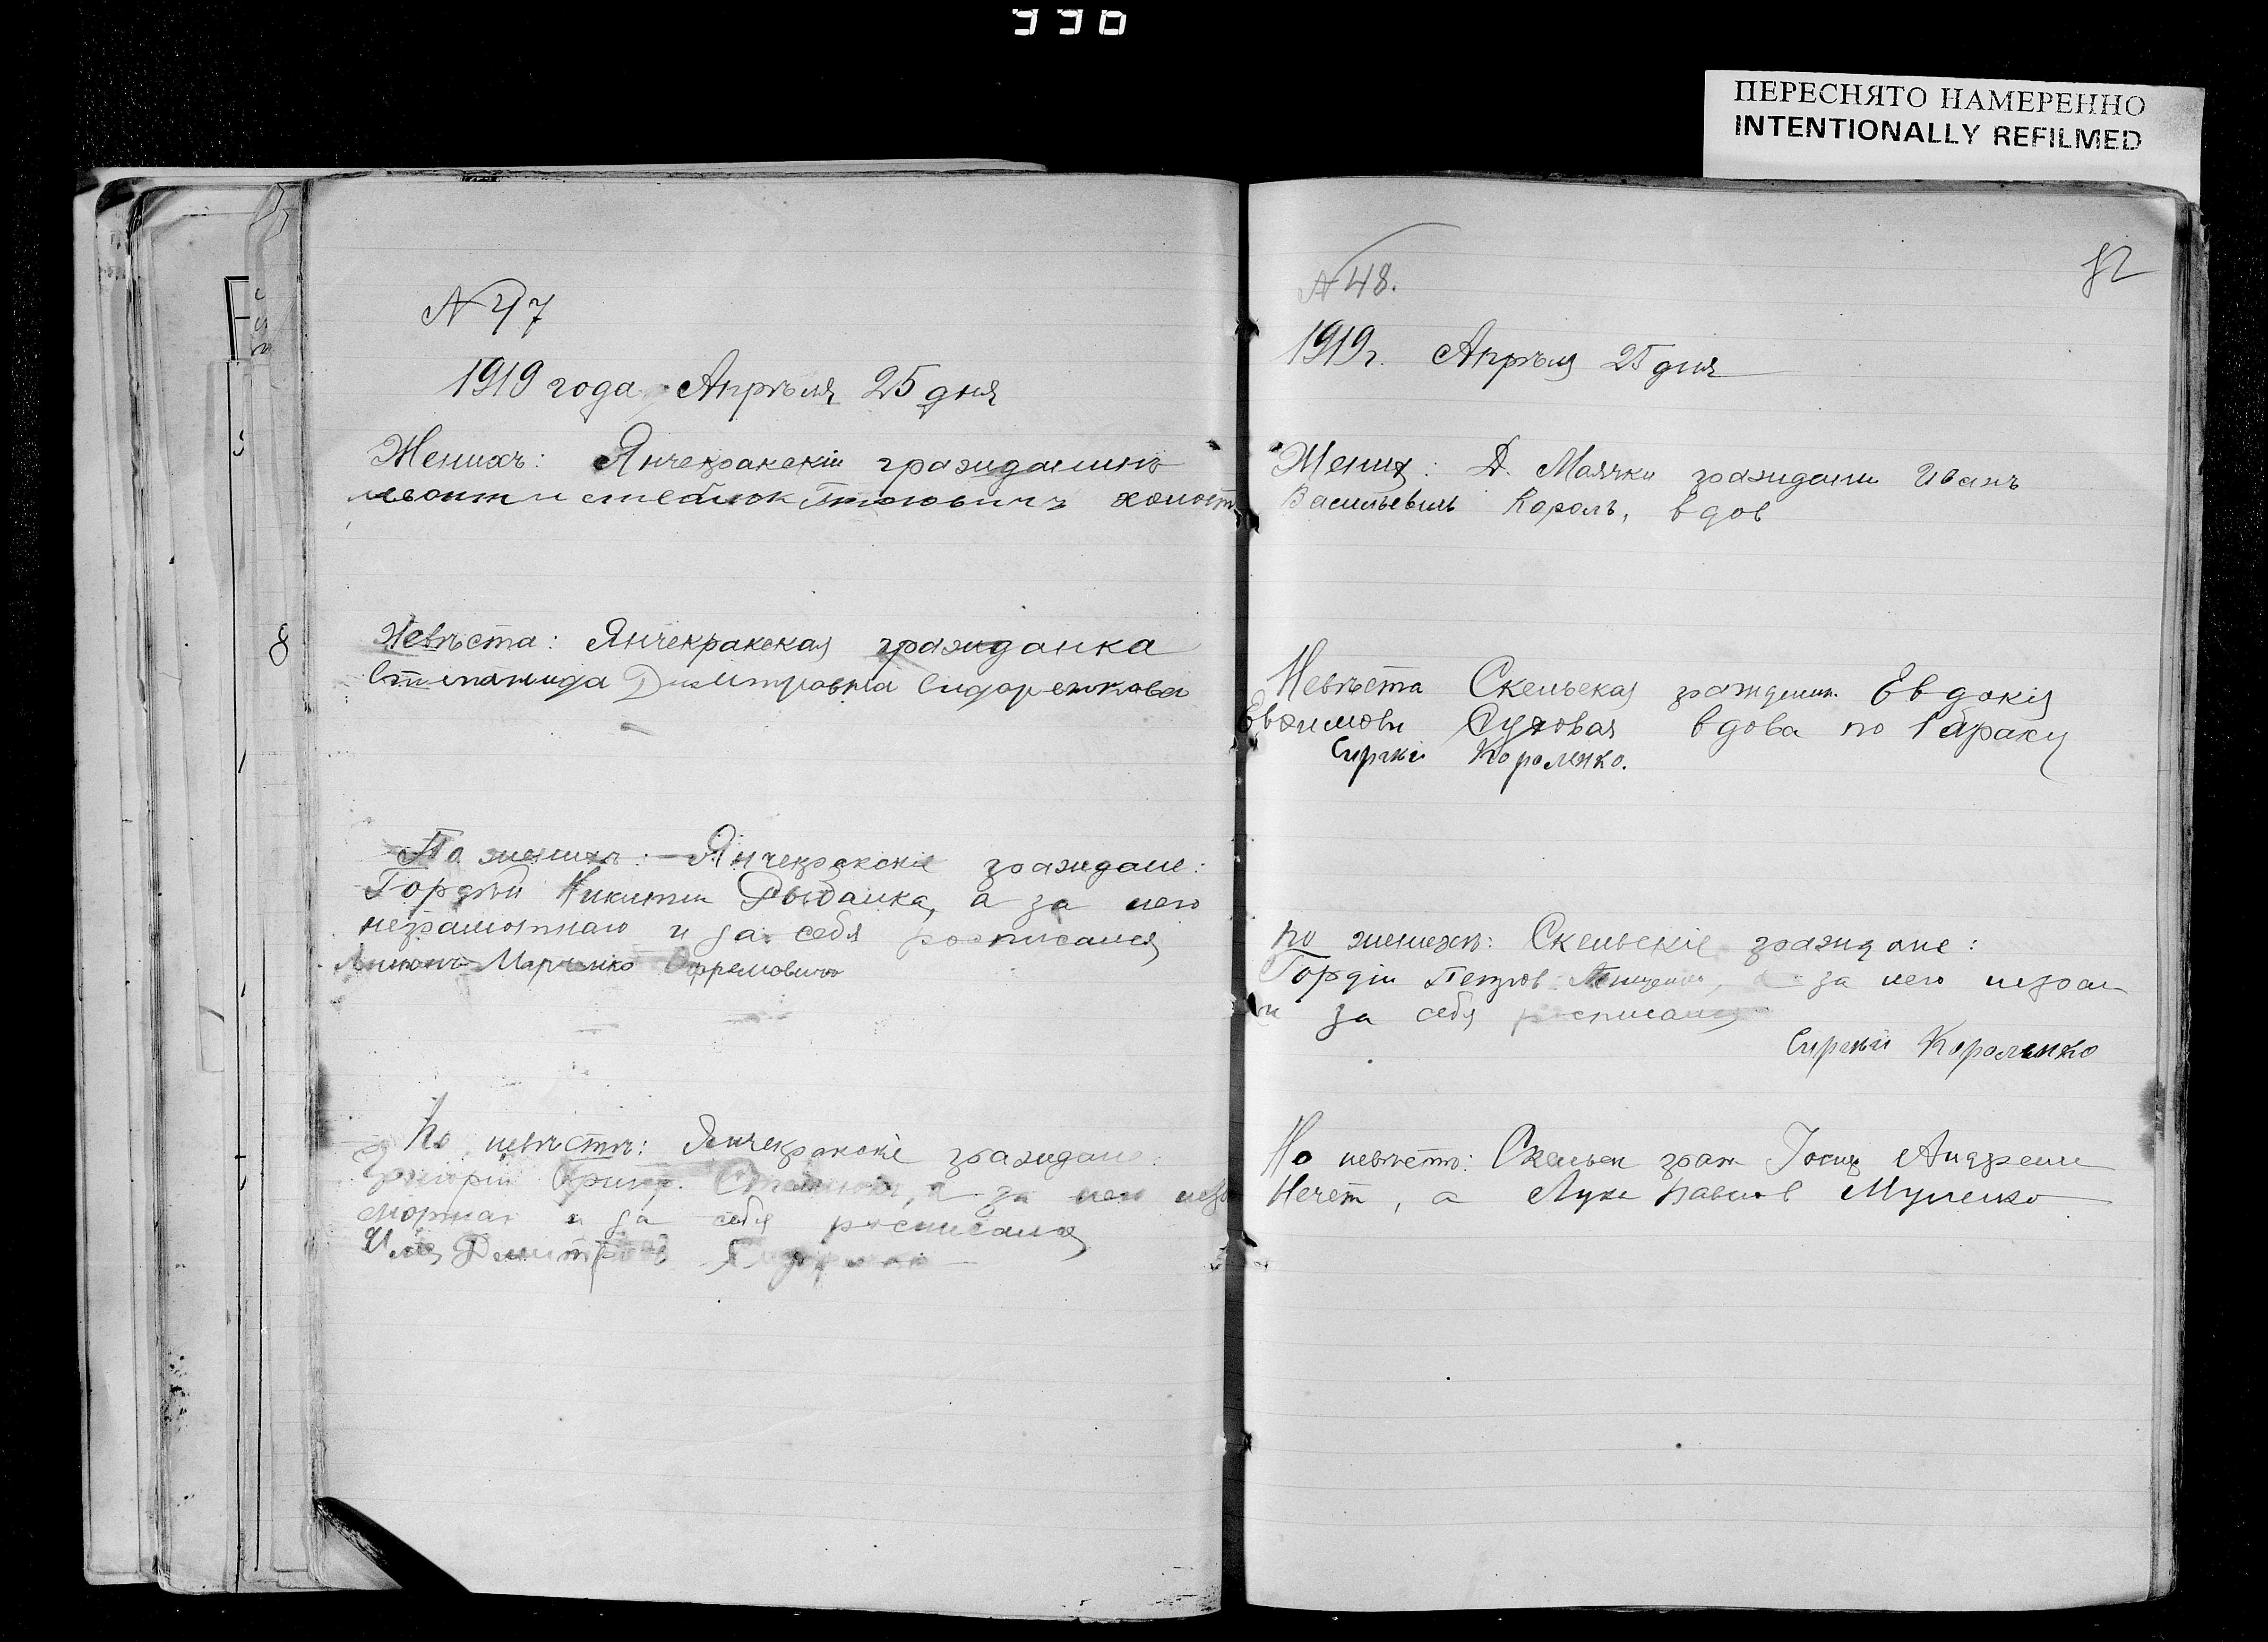 330
ПЕРЕСНЯТО НАМЕРЕННО
INTENTIONALLY REFILMED
N 47
1919 года Апрѣля 25 дня
Женихъ: Янчекракскій гражданинъ
холостъ
Невѣста: Янчекракская гражданка
Степанида Димитровна Сидоренкова
По женихѣ: Янчекракскіе граждане:
Гордѣй Никитин Рыбалка, а за него
неграмотнаго и за себя росписался
Антонъ Марченко Ефремовичъ
По невѣстѣ: Янчекракскіе граждане:
Григорій Григор. а за него негра
мотнаго и за себя росписался
Илія Дмитров
82
N 48.
1919 г. Апрѣля 25 дня
Жених: Д. Маячки граждани Иванъ
Васильевичъ Король, вдов
Невѣста Скельская граждан. Евдокія
Евхимовн Суховая вдова по браку
Сиргій Короленко.
По женихѣ: Скельскіе граждане:
Гордій Петров за него неграм
и за себя росписался
Сиргій Короленко
По невѣстѣ: Скельск граж Іосиф Андреев
Нечет, а Лука Павлов